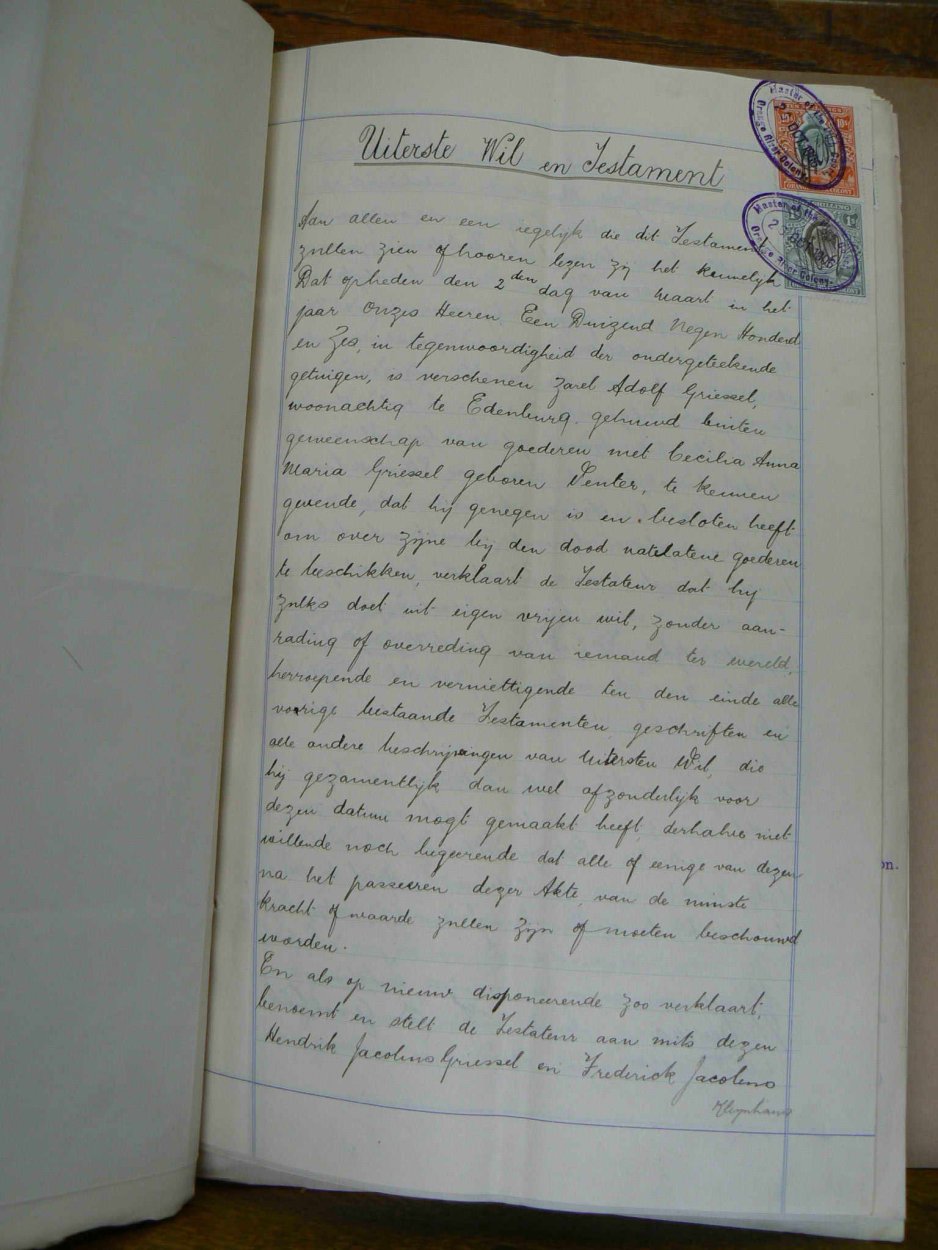 Uiterste Wil en Testament
Aan allen en een iegelyk die dit Testament
zullen zien of hooren lezen zij het kennelyk
Dat opheden den 2den dag van Maart in het
jaar Onzes Heeren Een Duizend Negen Honderd
en Zes, in tegenwoordigheid der ondergeteekende
getuigen, is verschenen Zarel Adolf Griessel,
woonachtig te Edenburg, gehuwd buiten
gemeenschap van goederen met Cecilia Anna
Maria Griessel geboren Venter, te kennen
gevende, dat hij genegen is en besloten heeft
om over zijne bij den dood natelatene goederen
te beschikken, verklaart de Testateur dat hij
zulks doet uit eigen vrijen wil, zonder aan-
rading of overreding van iemand ter wereld,
herroepende en vernietigende ten den einde alle
vorige bestaande Testamenten, geschriften en
alle andere beschrijvingen van Uitersten Wil, die
hij gezamentlijk dan wel afzonderlyk voor
dezen datum mogt gemaakt heeft, derhalve niet
willende noch begeerende dat alle of eenige van dezen
na het passeeren dezer Akte, van de minste
kracht of waarde zullen zijn of moeten beschouwd
worden.
En als op nieuw disponeerende zoo verklaart,
benoemt en stelt de Testateur aan mits dezen
Hendrik Jacobus Griessel en Frederick Jacobus
Kleynhans
Master of the
Orange River Colony
2 OCT
TEN SHILLINGS
10s/
ORANGE RIVER COLONY
Master of the
Orange River Colony
2 OCT
SHILLING
on.